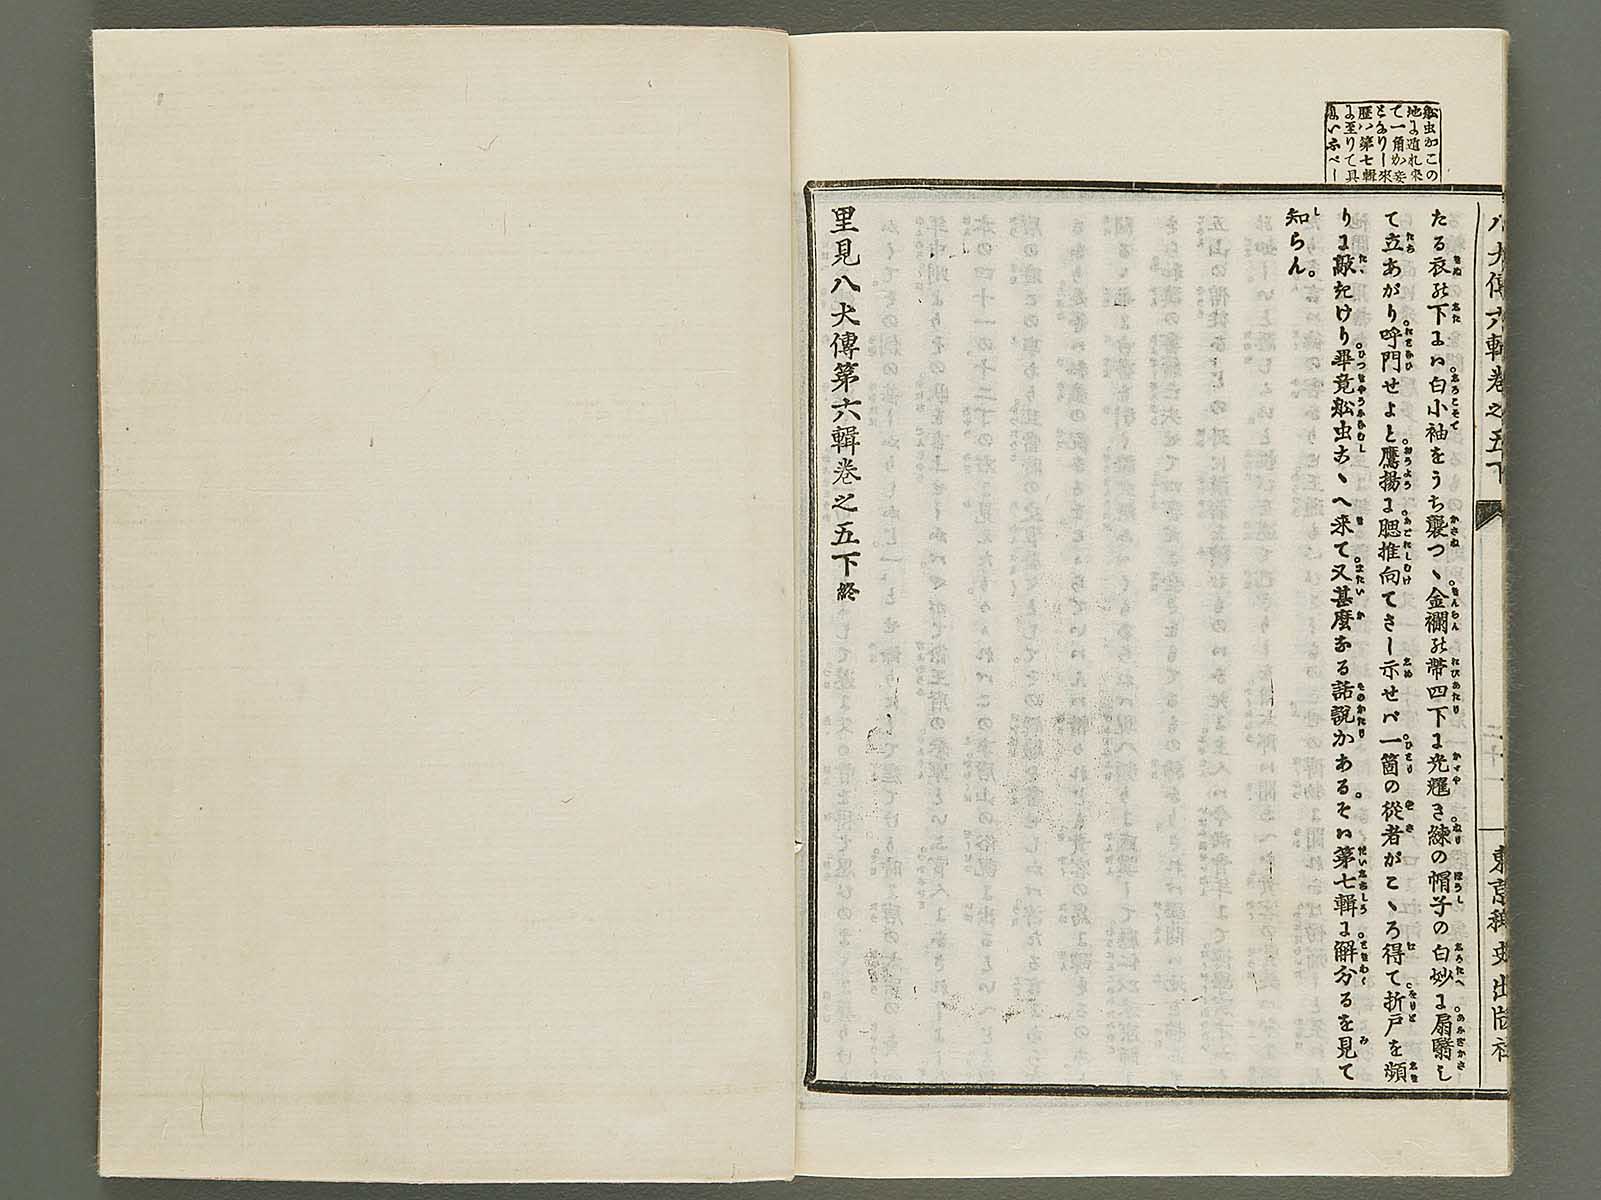 舩虫がこの
地に逃れ来
て一角が妾
となりし来
歴ハ第七輯
に至りて具
にいふべし
八犬傳六輯巻之五下
二十一
東京稗史出版社
たる衣の下にハ白小袖をうち襲つゝ金襴の帯四下に光耀き練の帽子の白妙に扇翳し
て立あがり呼門せよと鷹揚に腮推向てさし示せバ一箇の從者がこゝろ得て折戸を頻
りに敲たけり畢竟舩虫あゝへ来て又甚麼なる話説かあるそハ第七輯に解分るを見て
知らん。
里見八犬傳第六輯巻之五下終